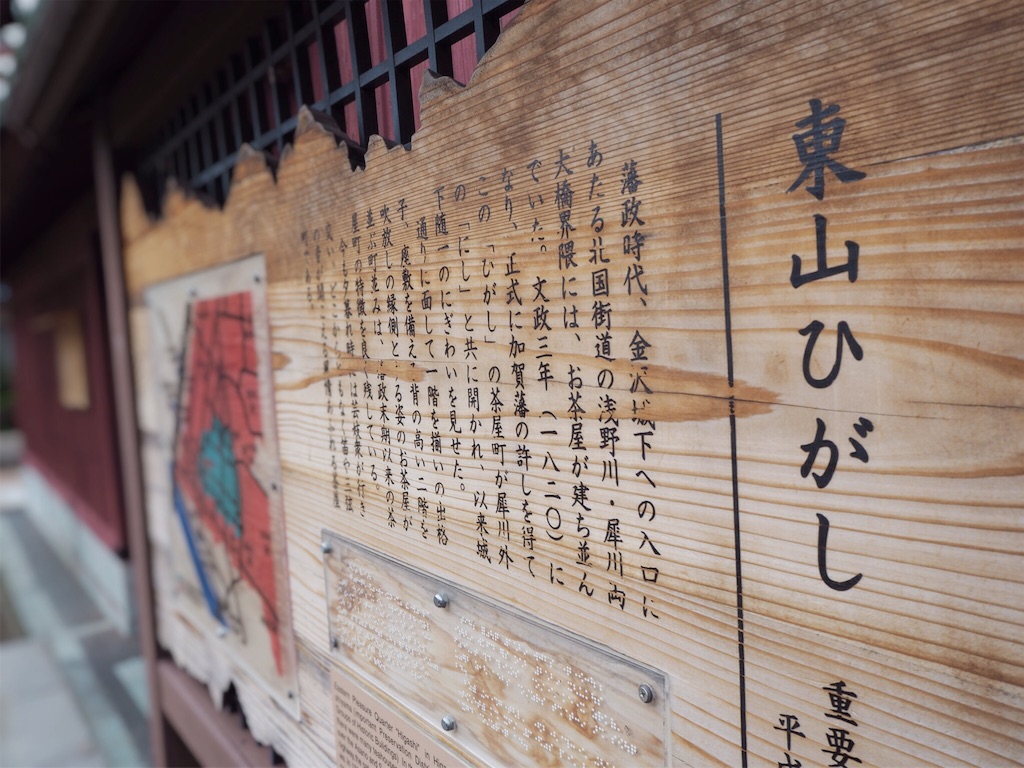 東山ひがし
重要
平成
藩政時代、金沢城下への入口に
あたる北国街道の浅野川・犀川両
大橋界隈には、お茶屋が建ち並ん
でいた。文政三年(一八二〇)に
なり、正式に加賀藩の許しを得て
この、「ひがし」の茶屋町が犀川外
の「にし」と共に開かれ、以来城
下随一のにぎわいを見せた。
通りに面して一階を揃いの出格
子、座敷を備え、背の高い二階を
吹放しの縁側とする姿のお茶屋が
並ぶ町並みは、藩政末期以来の茶
屋町の特徴を良く残している。
今も夕暮れ時には芸妓衆が行き
Eastern Pleasure Quarter "Higashi" in
Important Preservation
Groups of Historic Buildings)